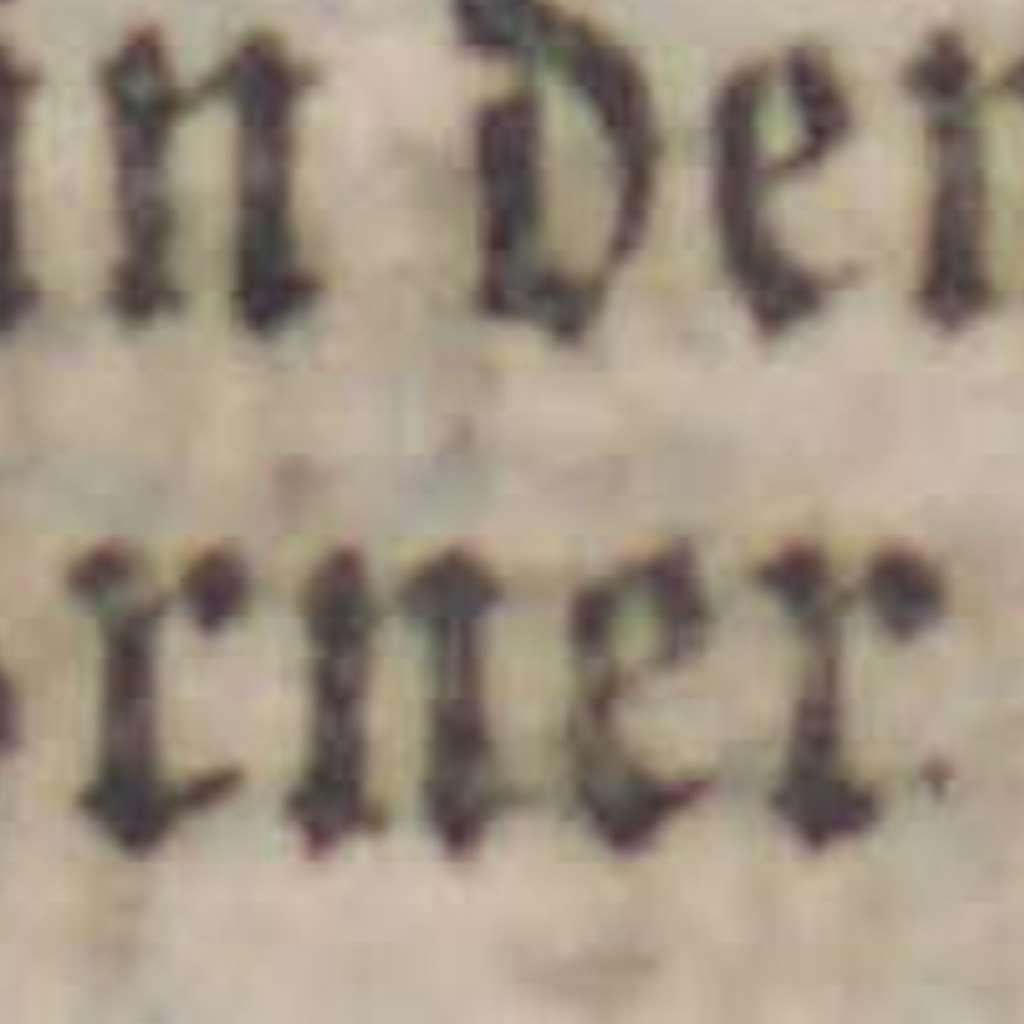 in der
rner